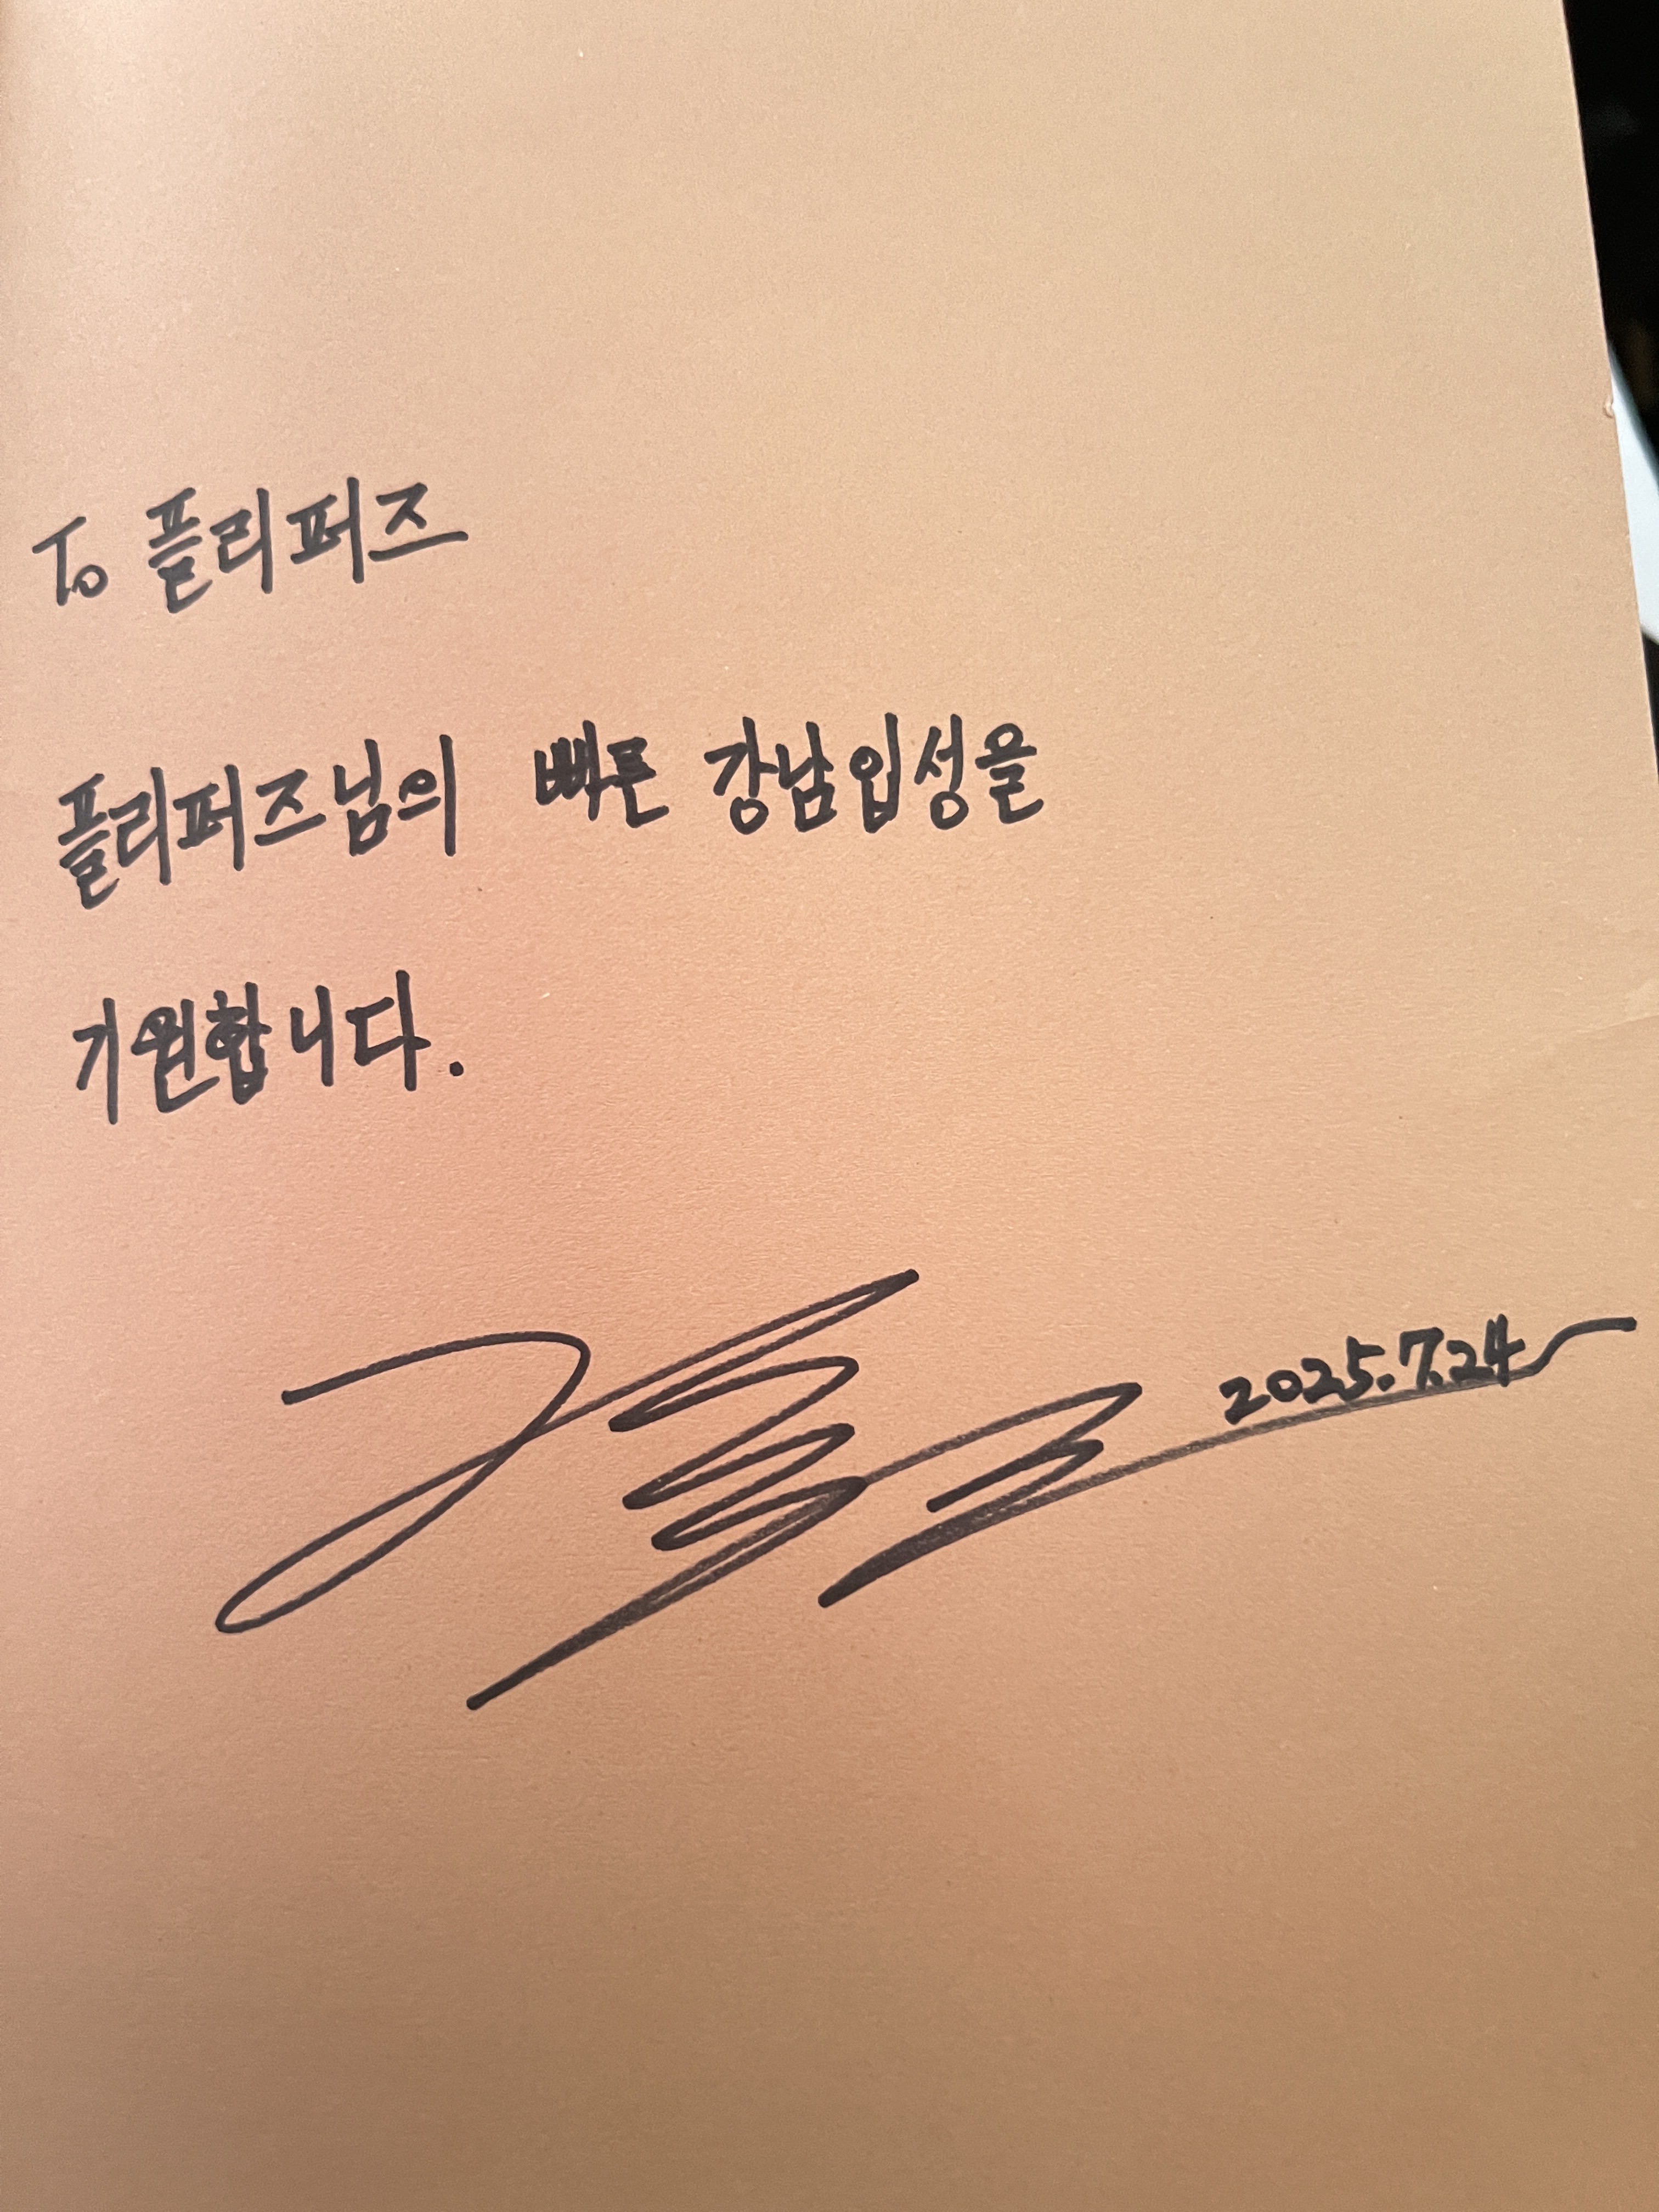 To 플리퍼즈
플리퍼즈님의 빠른 강남입성을
기원합니다.
2025.7.24